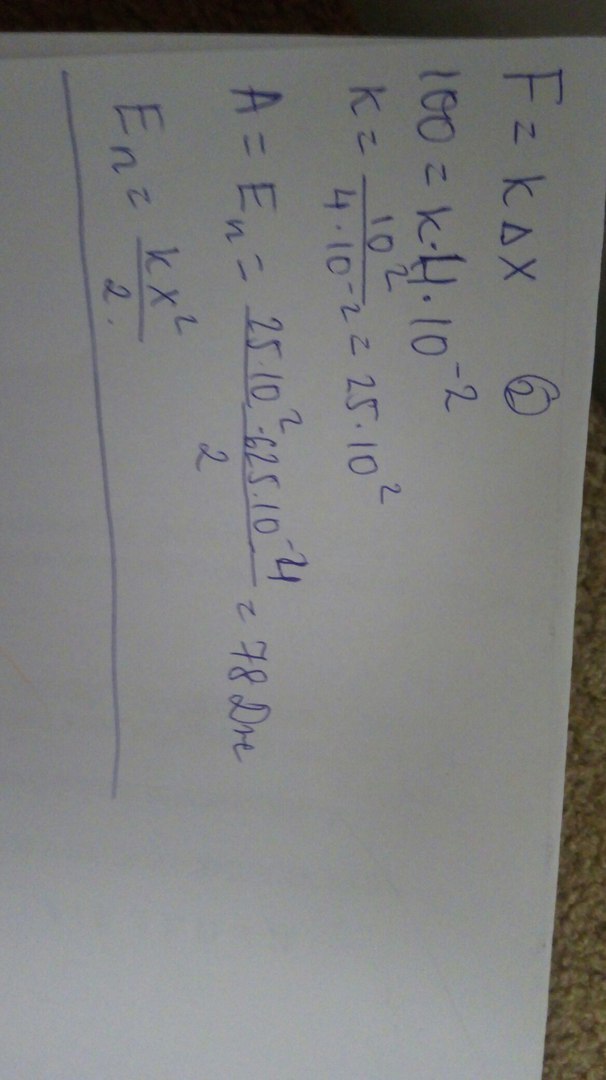 F = kΔx ②
100 = k·4·10⁻²
k = 10²/4·10⁻² = 25·10²
A = Eп = 25·10²·625·10⁻⁴/2 = 78 Дж
Eп = kx²/2.